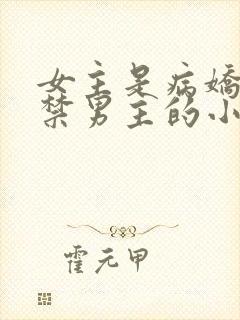 女主是病娇
禁男主的小
霍元甲